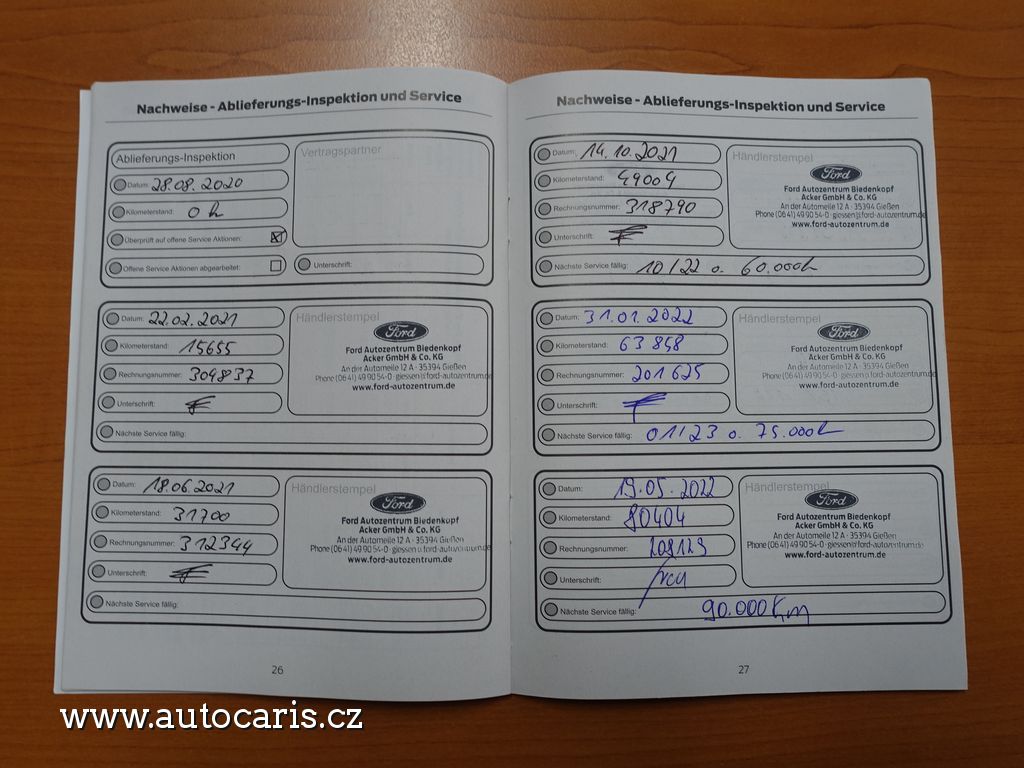 Nachweise - Ablieferungs-Inspektion und Service
Ablieferungs-Inspektion
Vertragspartner
Datum: 28.08.2020
Kilometerstand: 0 k
Überprüft auf offene Service Aktionen: x
Offene Service Aktionen abgearbeitet:
Unterschrift:
Datum: 22.02.2021
Kilometerstand: 15655
Rechnungsnummer: 309837
Unterschrift:
Nächste Service fällig:
Händlerstempel
Ford
Ford Autozentrum Biedenkopf
Acker GmbH & Co. KG
An der Automeile 12 A · 35394 Gießen
Phone (06 41) 49 90 54-0 · giessen@ford-autozentrum.de
www.ford-autozentrum.de
Datum: 18.06.2021
Kilometerstand: 31700
Rechnungsnummer: 312344
Unterschrift:
Nächste Service fällig:
Händlerstempel
Ford
Ford Autozentrum Biedenkopf
Acker GmbH & Co. KG
An der Automeile 12 A · 35394 Gießen
Phone (06 41) 49 90 54-0 · giessen@ford-autozentrum.de
www.ford-autozentrum.de
26
Nachweise - Ablieferungs-Inspektion und Service
Datum: 14.10.2021
Kilometerstand: 49004
Rechnungsnummer: 318790
Unterschrift:
Nächste Service fällig: 10/22 o. 60.000k
Händlerstempel
Ford
Ford Autozentrum Biedenkopf
Acker GmbH & Co. KG
An der Automeile 12 A · 35394 Gießen
Phone (06 41) 49 90 54-0 · giessen@ford-autozentrum.de
www.ford-autozentrum.de
Datum: 31.01.2022
Kilometerstand: 63848
Rechnungsnummer: 201625
Unterschrift:
Nächste Service fällig: 01/23 o. 75.000k
Händlerstempel
Ford
Ford Autozentrum Biedenkopf
Acker GmbH & Co. KG
An der Automeile 12 A · 35394 Gießen
Phone (06 41) 49 90 54-0 · giessen@ford-autozentrum.de
www.ford-autozentrum.de
Datum: 19.05.2022
Kilometerstand: 80404
Rechnungsnummer: 208129
Unterschrift:
Nächste Service fällig: 90.000 Km
Händlerstempel
Ford
Ford Autozentrum Biedenkopf
Acker GmbH & Co. KG
An der Automeile 12 A · 35394 Gießen
Phone (06 41) 49 90 54-0 · giessen@ford-autozentrum.de
www.ford-autozentrum.de
27
www.autocaris.cz